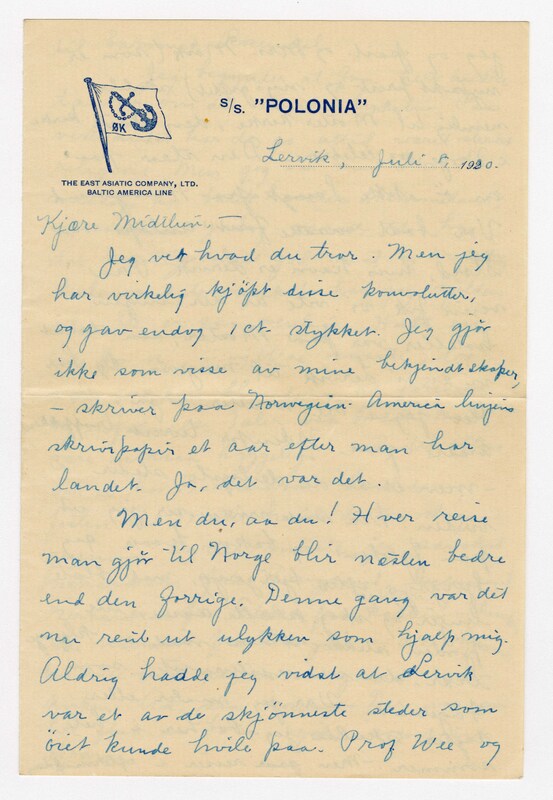 ØK
S/S. "POLONIA"
Lervik, Juli 8, 1920.
THE EAST ASIATIC COMPANY, LTD.
BALTIC AMERICA LINE
Kjære Midtlien, —
Jeg vet hvad du tror. Men jeg
har virkelig kjøpt disse konvolutter,
og gav endog 1 ct. stykket. Jeg gjør
ikke som visse av mine bekjendtskaper,
— skriver paa Norwegian America linjens
skrivepapir et aar efter man har
landet. Ja, det var det.
Men du, aa du! Hver reise
man gjør til Norge blir næsten bedre
end den forrige. Denne gang var det
nu rent ut ulykken som hjalp mig.
Aldrig hadde jeg vidst at Lervik
var et av de skjønneste steder som
øiet kunde hvile paa. Prof Wee og